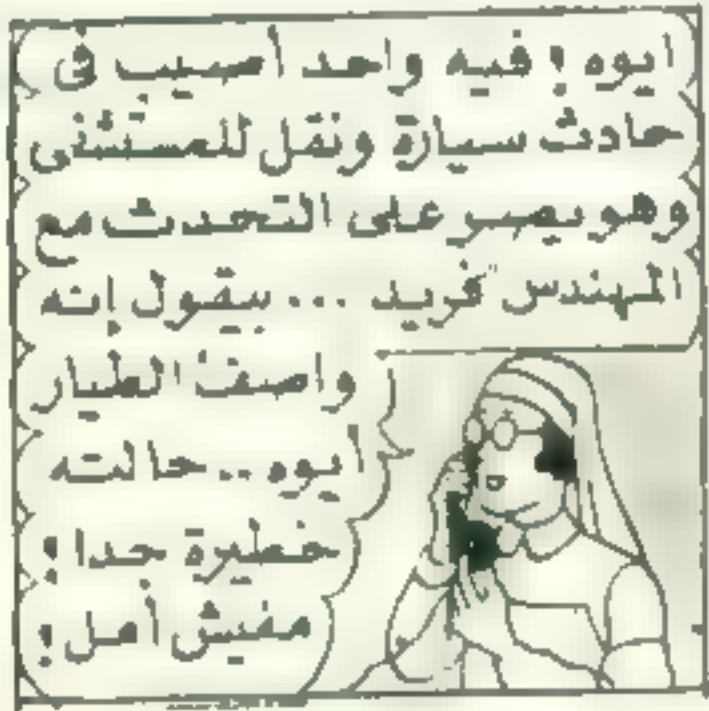 ايوه ! فيه واحد أصيب فى
حادث سيارة ونقل للمستشفى
وهو يصر على التحدث مع
المهندس "فريد ... بيقول إنه
واصف الطيار
أيوه .. حالته
خطيرة جدا !
مفيش أمل !